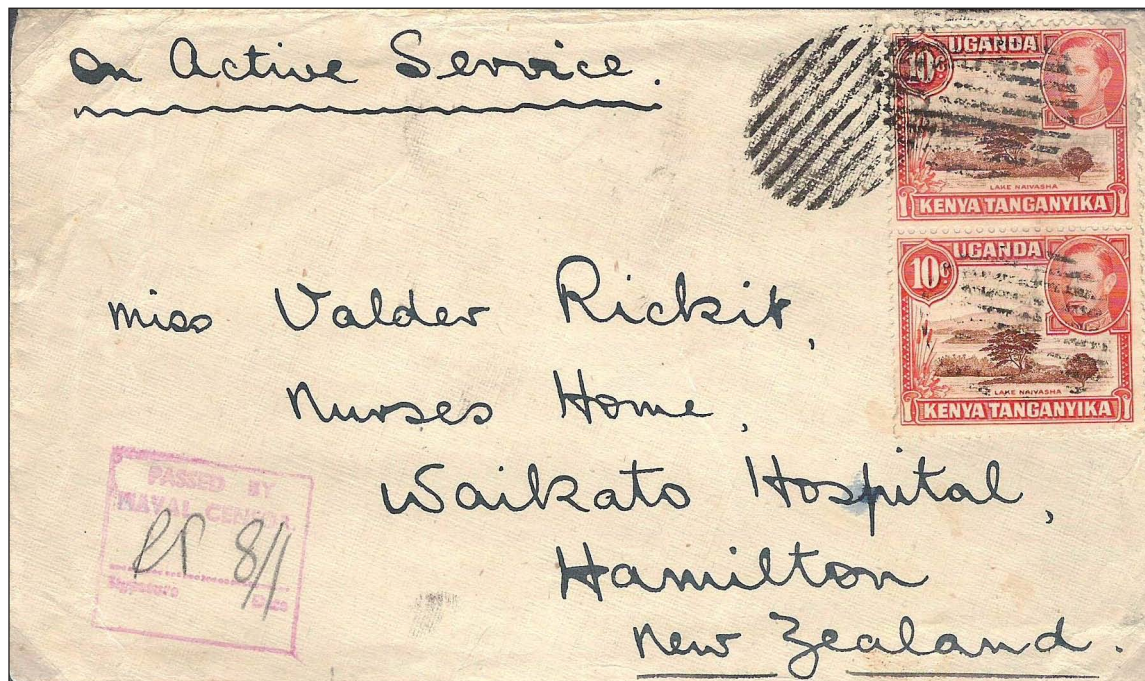 on Active Service.
UGANDA
10c
LAKE NAIVASHA
KENYA TANGANYIKA
UGANDA
10c
LAKE NAIVASHA
KENYA TANGANYIKA
Miss Valder Rickit,
Nurses Home,
Waikato Hospital,
Hamilton
New Zealand.
PASSED BY
NAVAL CENSOR
8/1
Signature Date